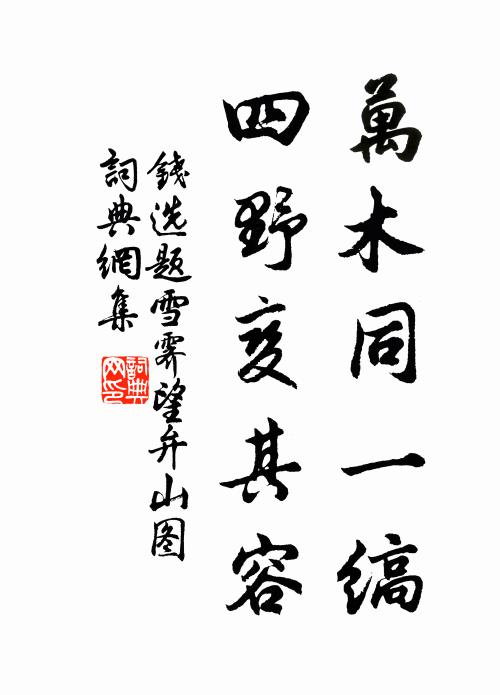 萬木同一縞
四野变其容
錢选题雪霁望弁山图
詞典網集
詞典
网印